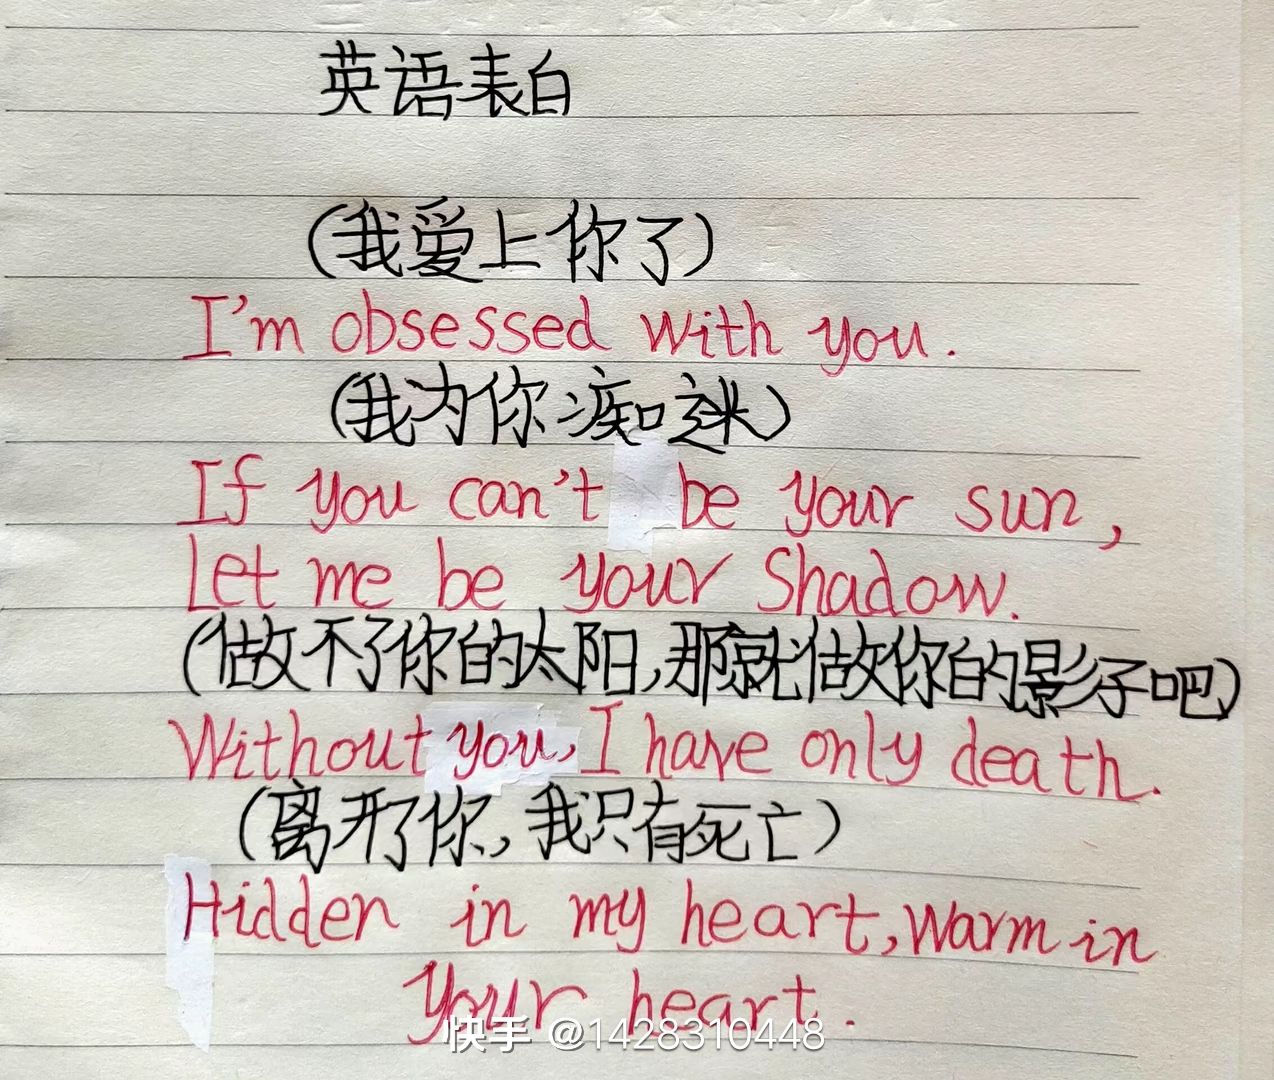 英语表白
(我爱上你了)
I'm obsessed with you.
(我为你痴迷)
If you can't be your sun,
Let me be your Shadow.
(做不了你的太阳,那就做你的影子吧)
Without you, I have only death.
(离开了你,我只有死亡)
Hidden in my heart, Warm in
your heart.
快手 @1428310448